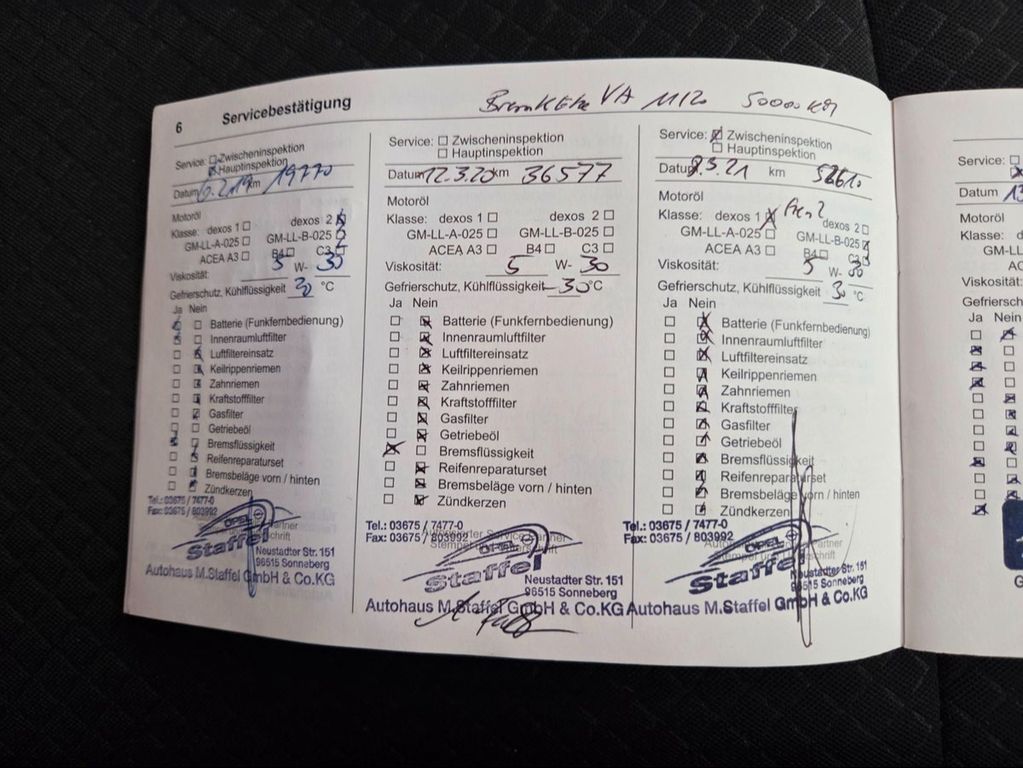 6 Servicebestätigung
VA 11/20 50000 km
Service: Zwischeninspektion
Hauptinspektion
Datum km 19770
Motoröl
Klasse: dexos 1 dexos 2
GM-LL-A-025 GM-LL-B-025
ACEA A3 B4 C3
Viskosität: 5 W- 30
Gefrierschutz, Kühlflüssigkeit 30 °C
Ja Nein
Batterie (Funkfernbedienung)
Innenraumluftfilter
Luftfiltereinsatz
Keilrippenriemen
Zahnriemen
Kraftstofffilter
Gasfilter
Getriebeöl
Bremsflüssigkeit
Reifenreparaturset
Bremsbeläge vorn / hinten
Zündkerzen
Tel.: 03675 / 7477-0
Fax: 03675 / 803992
OPEL
Staffel
Neustadter Str. 151
96515 Sonneberg
Autohaus M.Staffel GmbH & Co.KG
Service: Zwischeninspektion
Hauptinspektion
Datum 12.3.20 km 36577
Motoröl
Klasse: dexos 1 dexos 2
GM-LL-A-025 GM-LL-B-025
ACEA A3 B4 C3
Viskosität: 5 W- 30
Gefrierschutz, Kühlflüssigkeit 30 °C
Ja Nein
Batterie (Funkfernbedienung)
Innenraumluftfilter
Luftfiltereinsatz
Keilrippenriemen
Zahnriemen
Kraftstofffilter
Gasfilter
Getriebeöl
Bremsflüssigkeit
Reifenreparaturset
Bremsbeläge vorn / hinten
Zündkerzen
Tel.: 03675 / 7477-0
Fax: 03675 / 803992
OPEL
Staffel
Neustadter Str. 151
96515 Sonneberg
Autohaus M.Staffel GmbH & Co.KG
Service: Zwischeninspektion
Hauptinspektion
Datum 3.21 km
Motoröl
Klasse: dexos 1 dexos 2
GM-LL-A-025 GM-LL-B-025
ACEA A3 B4 C3
Viskosität: 5 W- 30
Gefrierschutz, Kühlflüssigkeit 30 °C
Ja Nein
Batterie (Funkfernbedienung)
Innenraumluftfilter
Luftfiltereinsatz
Keilrippenriemen
Zahnriemen
Kraftstofffilter
Gasfilter
Getriebeöl
Bremsflüssigkeit
Reifenreparaturset
Bremsbeläge vorn / hinten
Zündkerzen
Tel.: 03675 / 7477-0
Fax: 03675 / 803992
OPEL
Staffel
Neustadter Str. 151
96515 Sonneberg
Autohaus M.Staffel GmbH & Co.KG
Service:
Datum
Motoröl
Klasse:
Viskosität:
Ja Nein